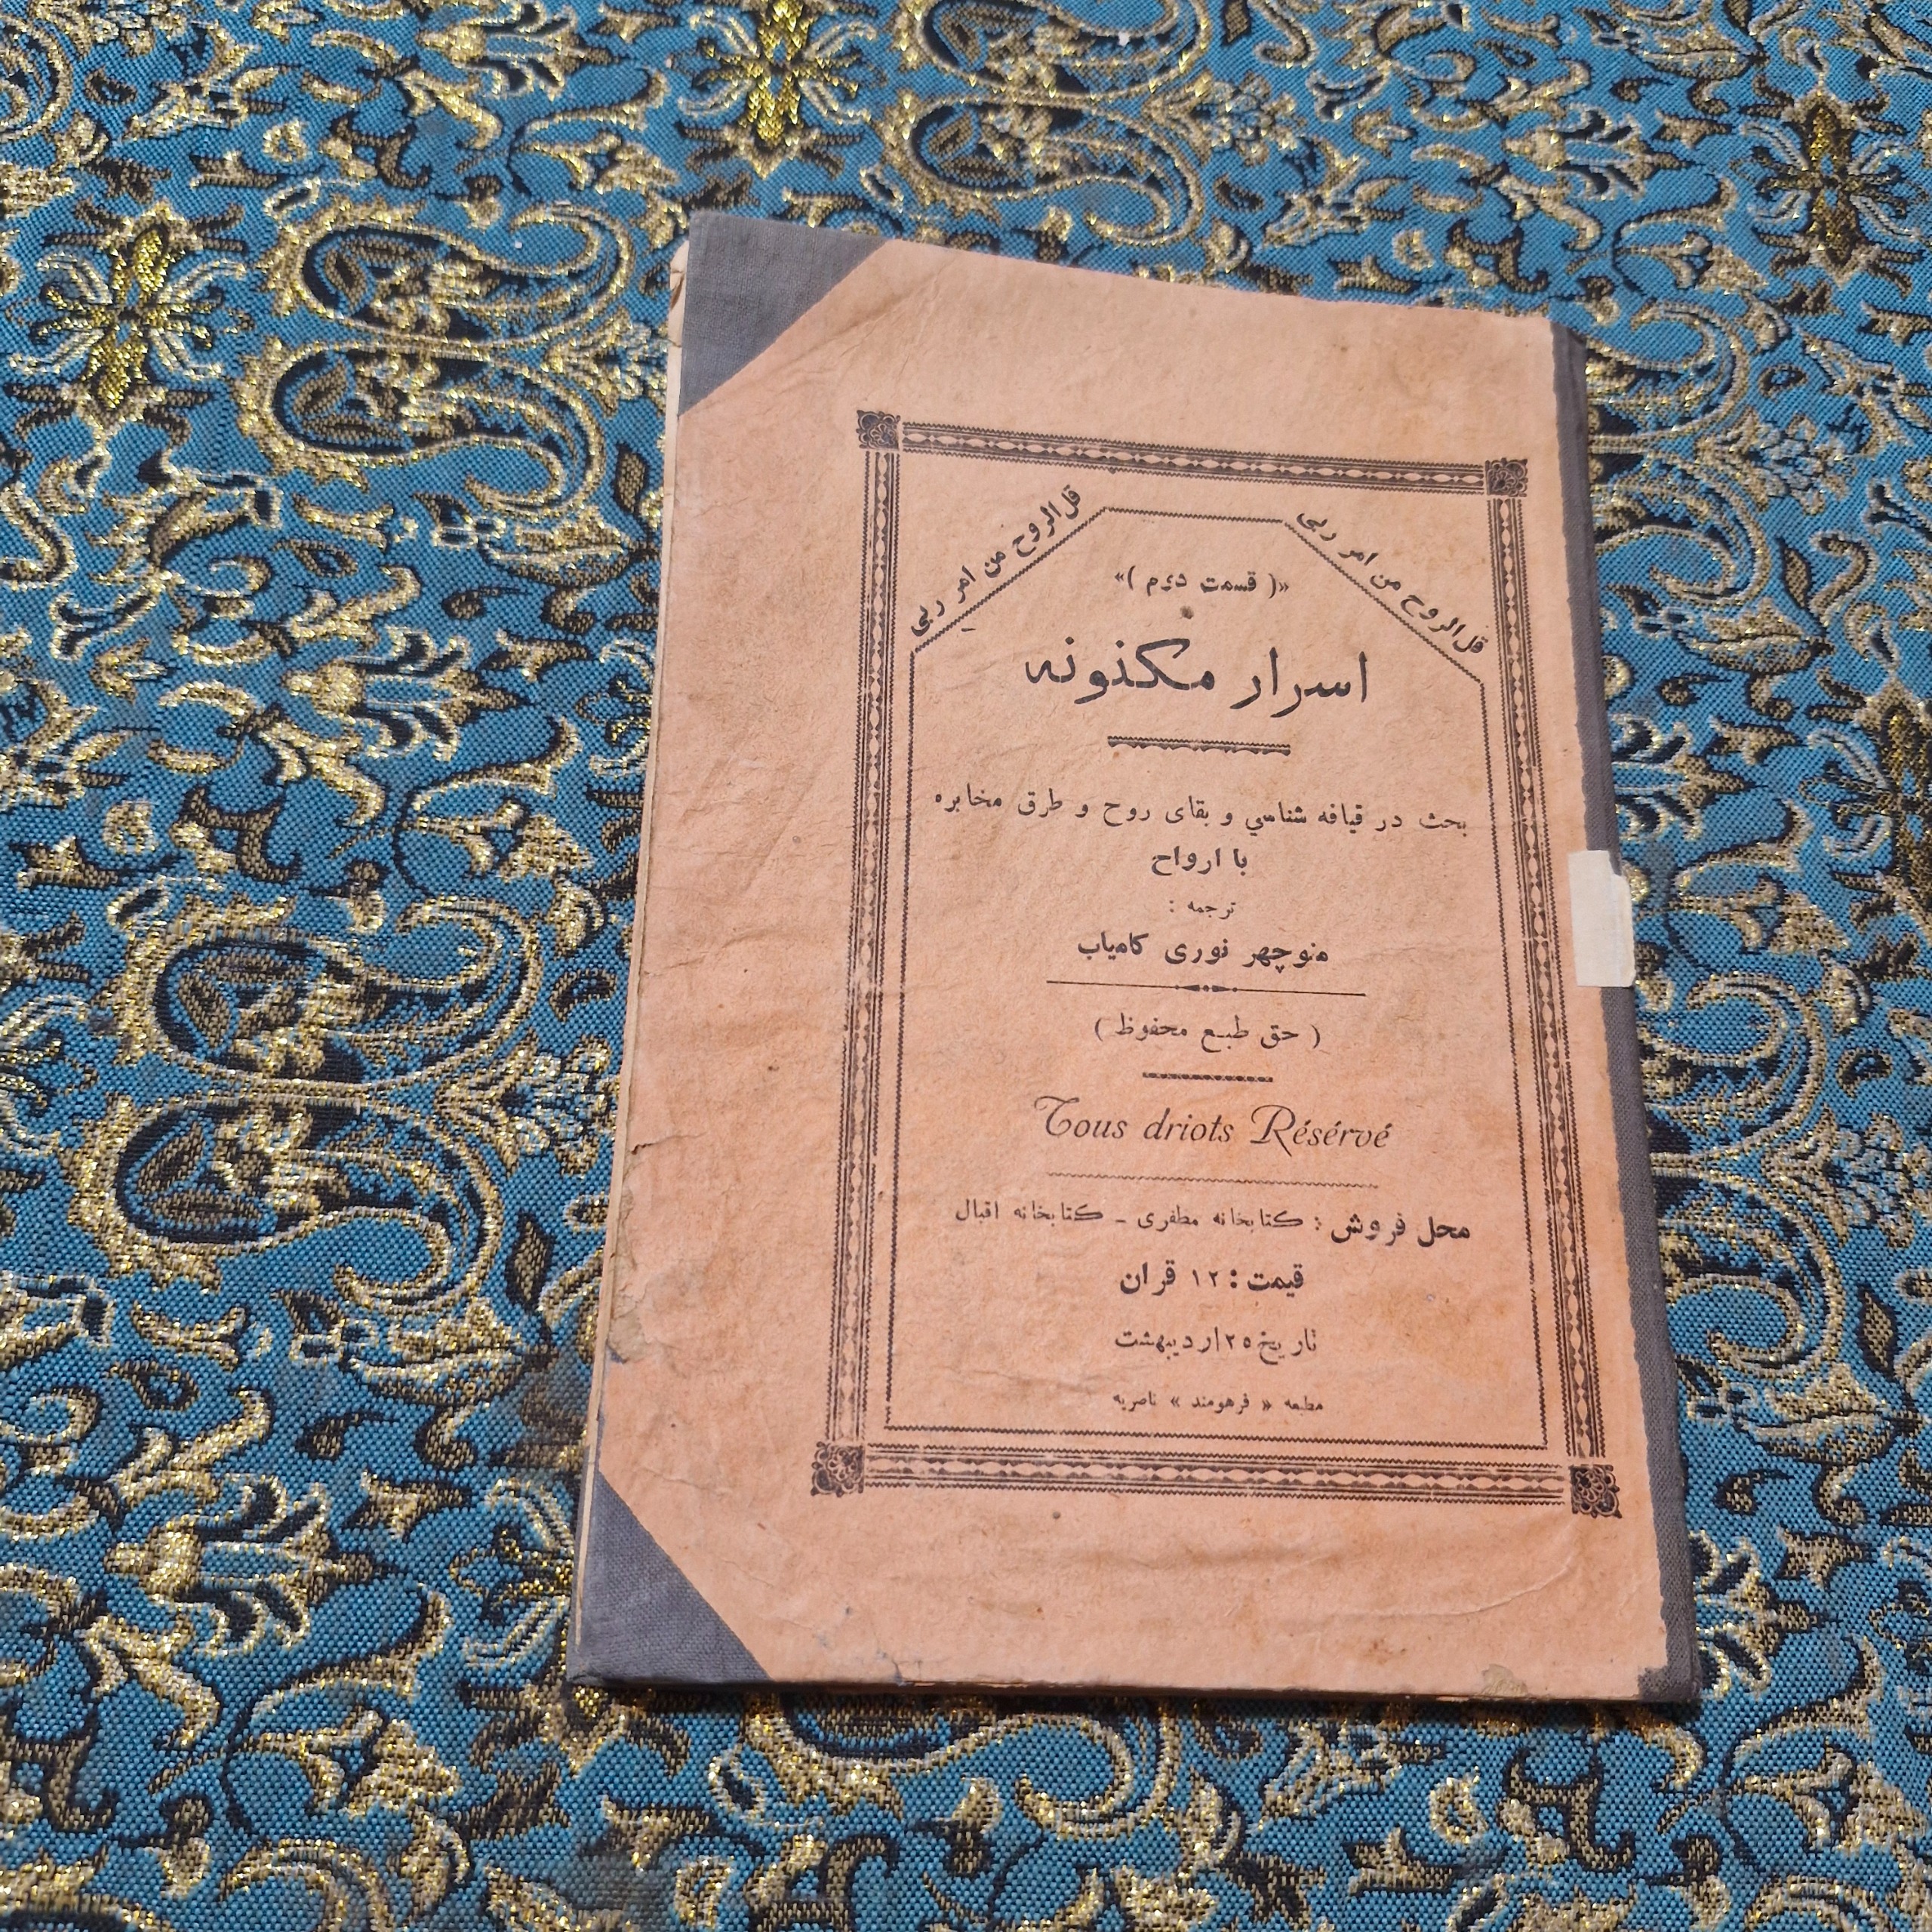 قل الروح من امر ربی
قل الروح من امر ربی
«( قسمت دوم )»
اسرار مکنونه
بحث در قیافه شناسي و بقای روح و طرق مخابره
با ارواح
ترجمه :
منوچهر نوری کامیاب
( حق طبع محفوظ )
Tous driots Résérvé
محل فروش : کتابخانه مظفری ـ کتابخانه اقبال
قیمت : ۱۲ قران
تاریخ ۲۵ اردیبهشت
مطبعه « فرهومند » ناصریه